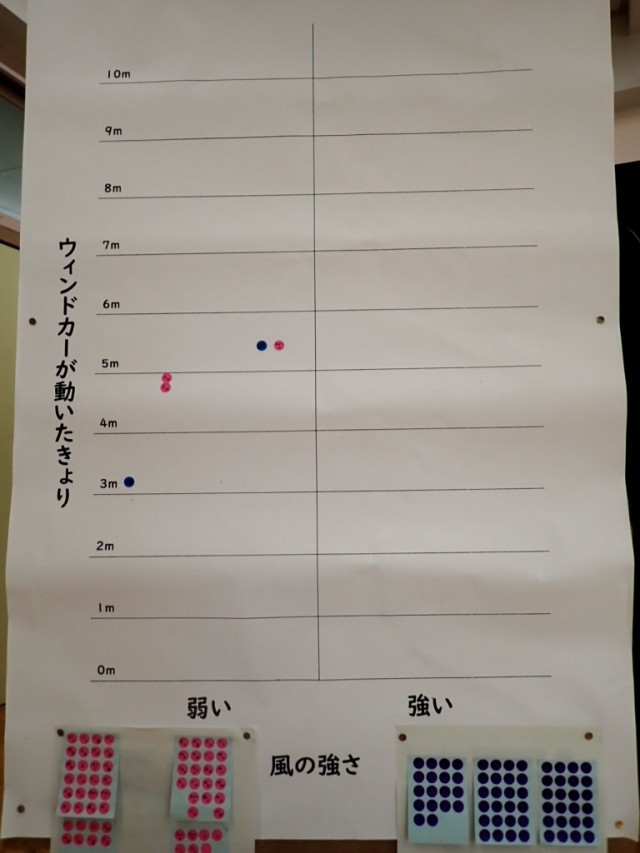 10m
9m
8m
7m
6m
5m
4m
3m
2m
1m
0m
ウィンドカーが動いたきょり
弱い
強い
風の強さ